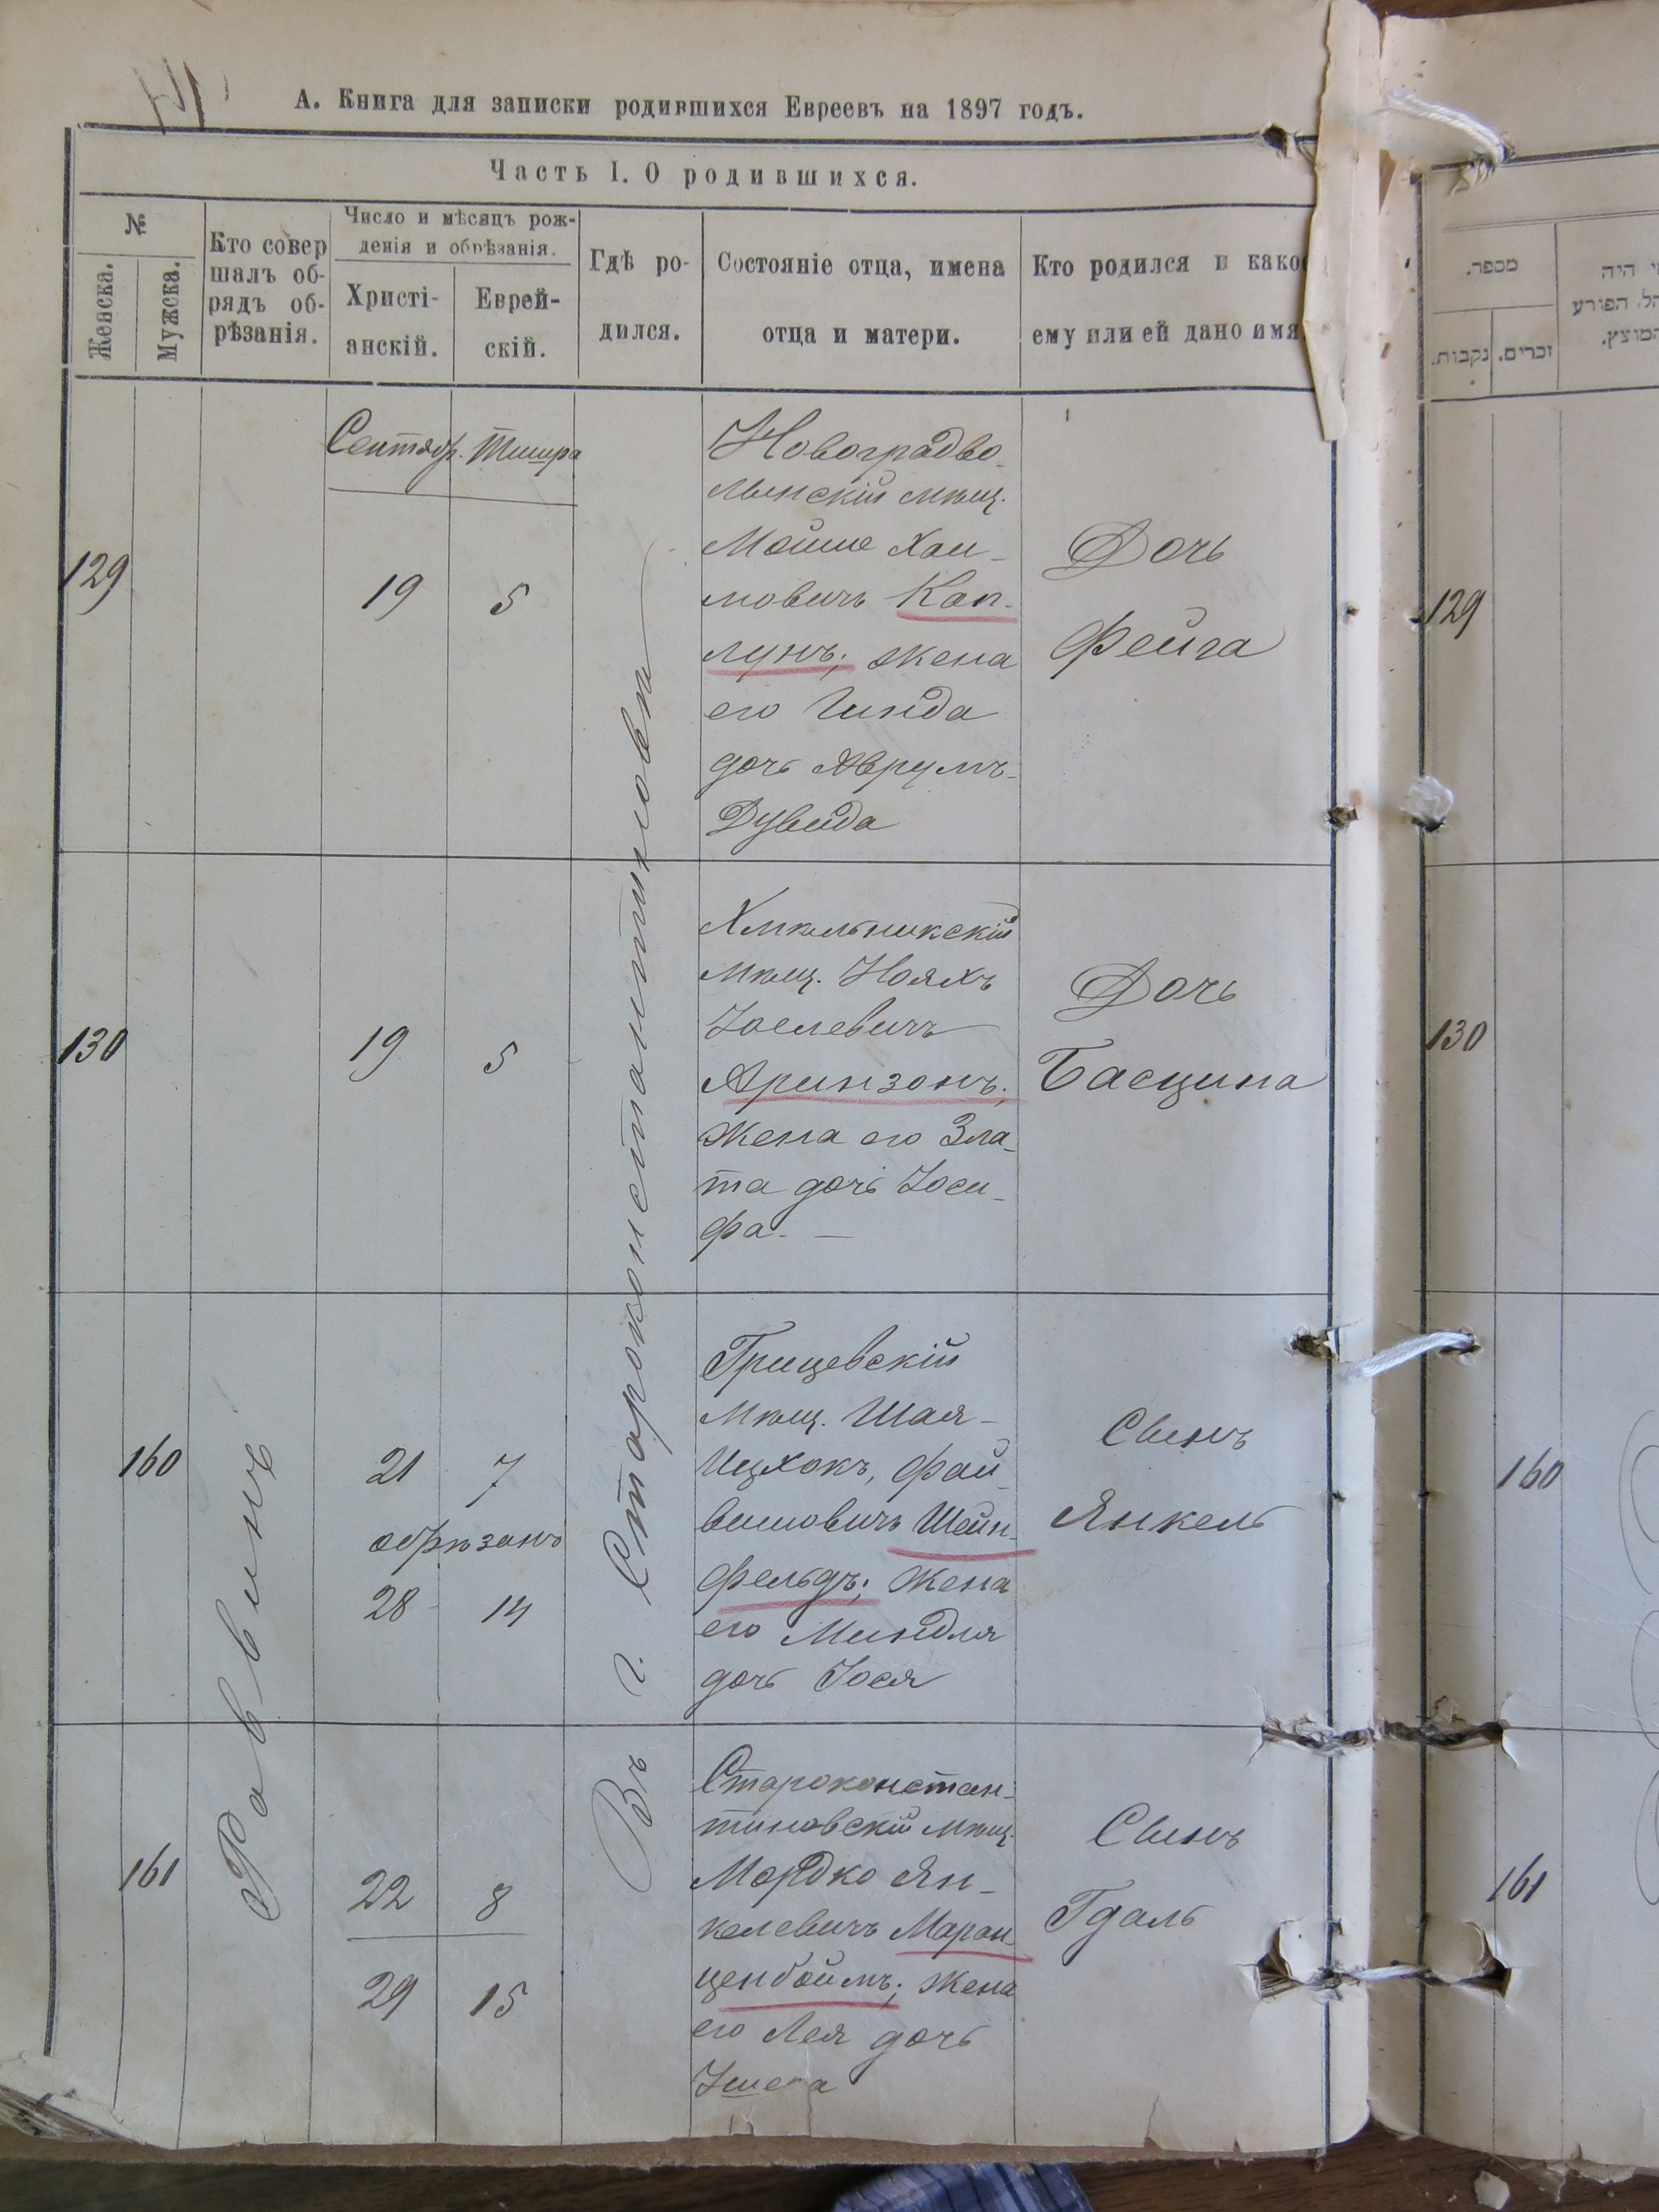 А. Книга для записки родившихся Евреевъ на 1897 годъ.
Часть I. О родившихся.
№
Женска.
Мужска.
Кто совер
шалъ об-
рядъ об-
рѣзанія.
Число и мѣсяцъ рож-
денія и обрѣзанія.
Христі-
анскій.
Еврей-
скій.
Гдѣ ро-
дился.
Состояніе отца, имена
отца и матери.
Кто родился и како
ему или ей дано имя
Сентябр. Тишра
129
19 5
Новоградво-
лынскій мѣщ.
Мойше Хаи-
мовичъ Кап-
лунъ; жена
его Гинда
дочь Аврумъ-
Дувида
Дочь
Фейга
130
19 5
Хмѣльникскій
мѣщ. Нояхъ
Іоселевичъ
Аринзонъ;
жена его Зла-
та дочь Іоси-
фа. —
Дочь
Басцина
160
21 7
обрѣзанъ
28 14
Грицевскій
мѣщ. Шая-
Ицхокъ, Фай-
вишовичъ Шейн-
фельдъ; жена
его Миндля
дочь Іося
Сынъ
Янкель
161
22 8
29 15
Староконстан-
тиновскій мѣщ.
Мордко Ян-
келевичъ Маран-
ценбоймъ; жена
его Лея дочь
Сынъ
Гдаль
Раввинъ
Въ г. Староконстантиновѣ
מספר.
נקבות.
זכרים.
היה
הפורע
המוצץ.
129
130
160
161